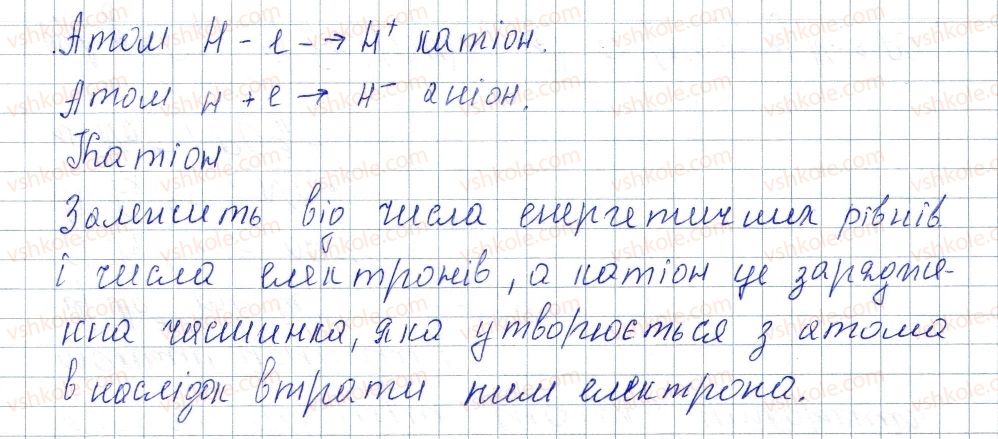 Атом H - e -→ H⁺ катіон.
Атом H + e → H⁻ аніон.
Катіон
Залежить від числа енергетичних рівнів
і числа електронів, а катіон це зарядже-
нна частинка, яка утворюється з атома
внаслідок втрати ним електрона.